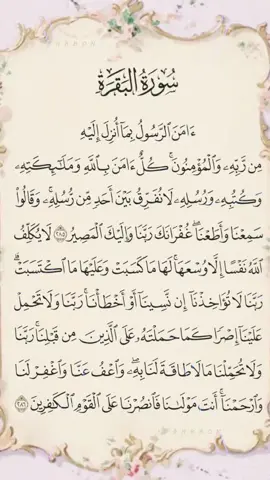 سُورَةُ البَقَرَةِ
ءَامَنَ ٱلرَّسُولُ بِمَآ أُنزِلَ إِلَيْهِ
مِن رَّبِّهِۦ وَٱلْمُؤْمِنُونَۚ كُلٌّ ءَامَنَ بِٱللَّهِ وَمَلَٰٓئِكَتِهِۦ
وَكُتُبِهِۦ وَرُسُلِهِۦ لَا نُفَرِّقُ بَيْنَ أَحَدٍ مِّن رُّسُلِهِۦۚ وَقَالُوا۟
سَمِعْنَا وَأَطَعْنَاۖ غُفْرَانَكَ رَبَّنَا وَإِلَيْكَ ٱلْمَصِيرُ ٢٨٥ لَا يُكَلِّفُ
ٱللَّهُ نَفْسًا إِلَّا وُسْعَهَاۚ لَهَا مَا كَسَبَتْ وَعَلَيْهَا مَا ٱكْتَسَبَتْۗ
رَبَّنَا لَا تُؤَاخِذْنَآ إِن نَّسِينَآ أَوْ أَخْطَأْنَاۚ رَبَّنَا وَلَا تَحْمِلْ
عَلَيْنَآ إِصْرًا كَمَا حَمَلْتَهُۥ عَلَى ٱلَّذِينَ مِن قَبْلِنَاۚ رَبَّنَا
وَلَا تُحَمِّلْنَا مَا لَا طَاقَةَ لَنَا بِهِۦۖ وَٱعْفُ عَنَّا وَٱغْفِرْ لَنَا
وَٱرْحَمْنَآۚ أَنتَ مَوْلَىٰنَا فَٱنصُرْنَا عَلَى ٱلْقَوْمِ ٱلْكَٰفِرِينَ ٢٨٦